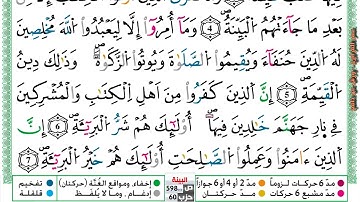 بَعْدِ مَا جَآءَتْهُمُ ٱلْبَيِّنَةُ ٤ وَمَآ أُمِرُوٓا۟ إِلَّا لِيَعْبُدُوا۟ ٱللَّهَ مُخْلِصِينَ
لَهُ ٱلدِّينَ حُنَفَآءَ وَيُقِيمُوا۟ ٱلصَّلَوٰةَ وَيُؤْتُوا۟ ٱلزَّكَوٰةَ ۚ وَذَٰلِكَ دِينُ
ٱلْقَيِّمَةِ ٥ إِنَّ ٱلَّذِينَ كَفَرُوا۟ مِنْ أَهْلِ ٱلْكِتَٰبِ وَٱلْمُشْرِكِينَ
فِى نَارِ جَهَنَّمَ خَٰلِدِينَ فِيهَآ ۚ أُو۟لَٰٓئِكَ هُمْ شَرُّ ٱلْبَرِيَّةِ ٦ إِنَّ
ٱلَّذِينَ ءَامَنُوا۟ وَعَمِلُوا۟ ٱلصَّٰلِحَٰتِ أُو۟لَٰٓئِكَ هُمْ خَيْرُ ٱلْبَرِيَّةِ ٧
مدّ 6 حركات لزوماً مدّ 2 أو 4 أو 6 جوازاً البينة إخفاء، ومواقع الغُنَّة (حركتان) تفخيم
مدّ واجب 4 أو 5 حركات مدّ حركتان ص 598 حزب 60 إدغام، وما لا يُلفَظ قلقلة